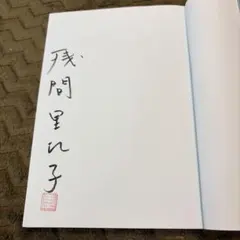 残間里江子